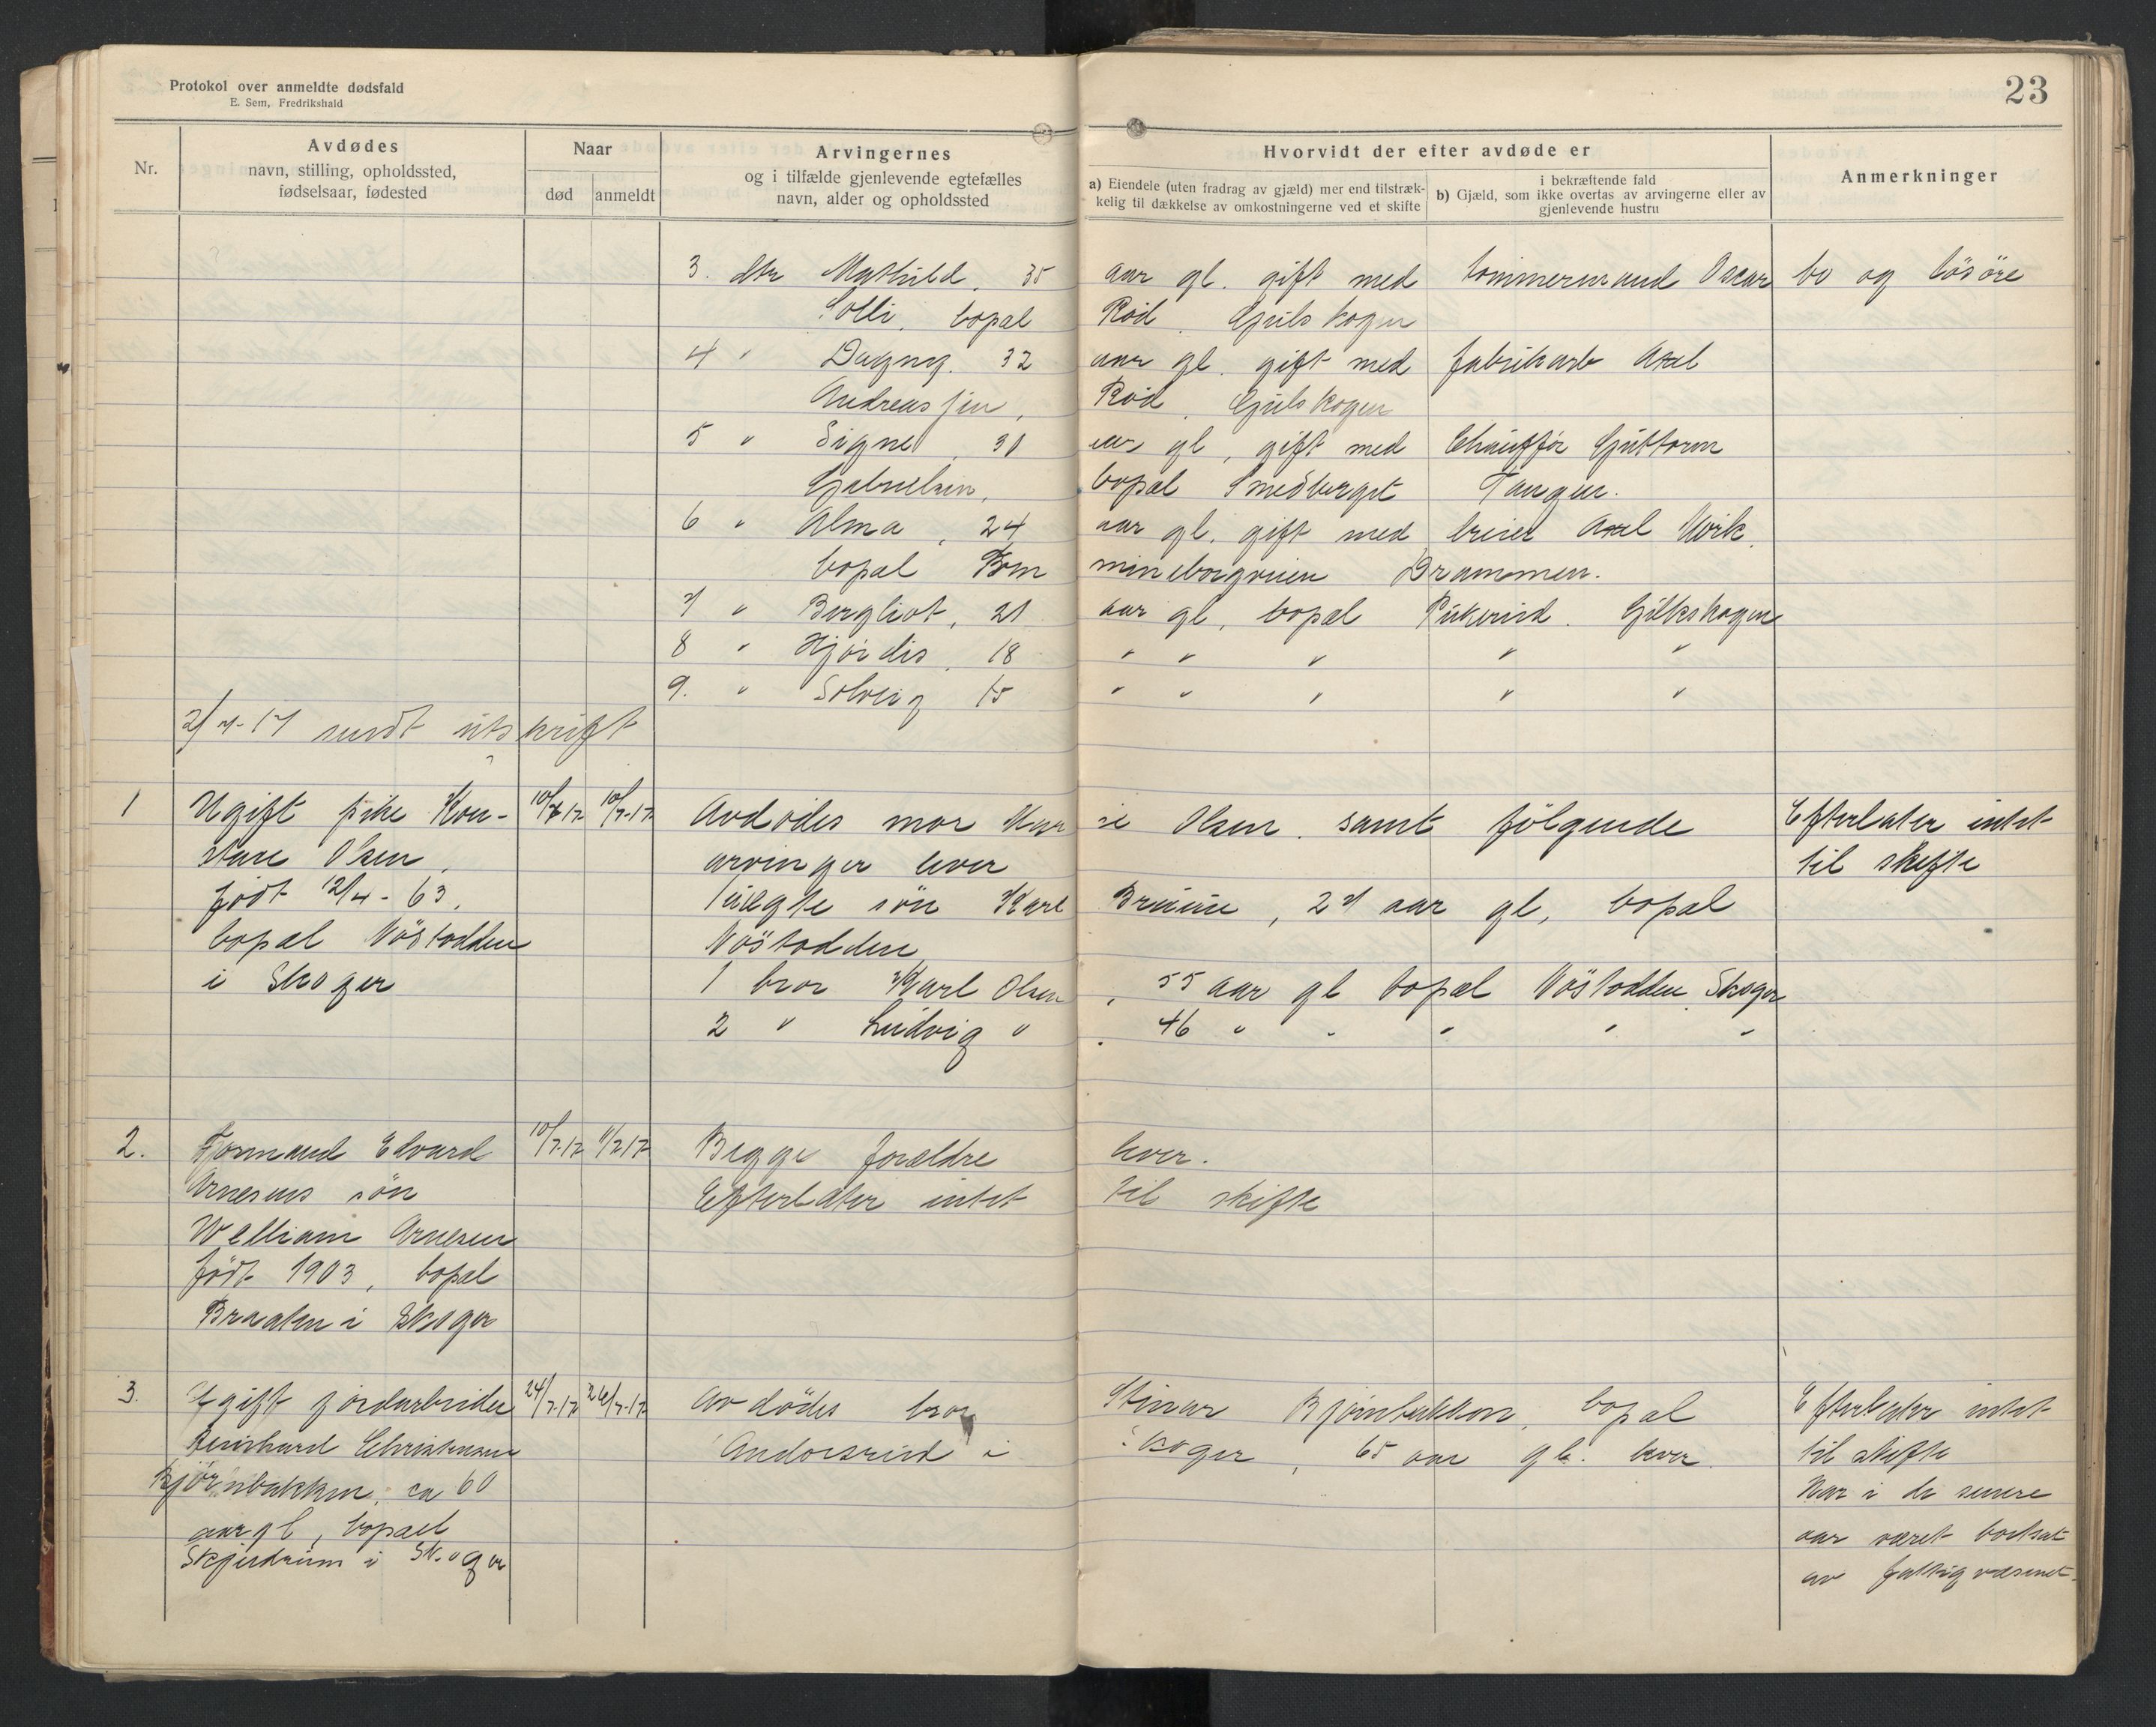 Protokol over anmeldte dødsfald
E. Sem, Fredrikshald
23
Nr.
Avdødes
navn, stilling, opholdssted,
fødselsaar, fødested
Naar
død
anmeldt
Arvingernes
og i tilfælde gjenlevende egtefælles
navn, alder og opholdssted
Hvorvidt der efter avdøde er
a) Eiendele (uten fradrag av gjæld) mer end tilstræk-
kelig til dækkelse av omkostningerne ved et skifte
i bekræftende fald
b) Gjæld, som ikke overtas av arvingerne eller av
gjenlevende hustru
Anmerkninger
3. dtr Mathild, 35 aar gl. gift med tømmermand Oscar bo og løsøre
Solli, bopæl Röd, Gulskogen
4 " Dagny, 32 aar gl. gift med fabrikarb Axel
Andreassen, Röd, Gulskogen
5 " Signe, 30 aar gl, gift med Chauffør Guttorm
Gabrielsen, bopæl Smedberget Tangen.
6 " Alma, 24 aar gl. gift med Axel
bopæl Drammen.
7 " Bergliot, 21 aar gl, bopæl Pukerud. Gulskogen
8 " Hjördis, 18 " " " " "
9. " Solveig 15 " " " " "
2/7-17 sendt utskrift
1
Ugift pike Kon-
stane Olsen,
født 12/4-63,
bopæl Nöstodden
i Skoger
10/7 17
10/7-17
Avdødes mor Olsen. samt følgende
arvinger lever
1 uægte sön Karl Bruun, 27 aar gl, bopæl
Nöstodden
1 bror Karl Olsen, 55 aar gl bopæl Nöstodden, Skoger
2 " Ludvig ", 46 " " " " "
Efterlater intet
til skifte
2.
Formand Edvard
Arnesens sön
William Arnesen
født 1903, bopæl
Braaten i Skoger
10/7-17
11/7 17
Begge forældre lever.
Efterlater intet til skifte
3.
Ugift jordarbeider
Reinhard Christensen
Björnbakken, ca 60
aar gl, bopæl
i Skoger
24/7-17
26/7-17
Avdødes bror Steinar Björnbakken, bopæl
Andorsrud i Skoger, 65 aar gl. lever.
Efterlater intet
til skifte
Har i de senere
aar været bortsat
av fattigvæsenet.